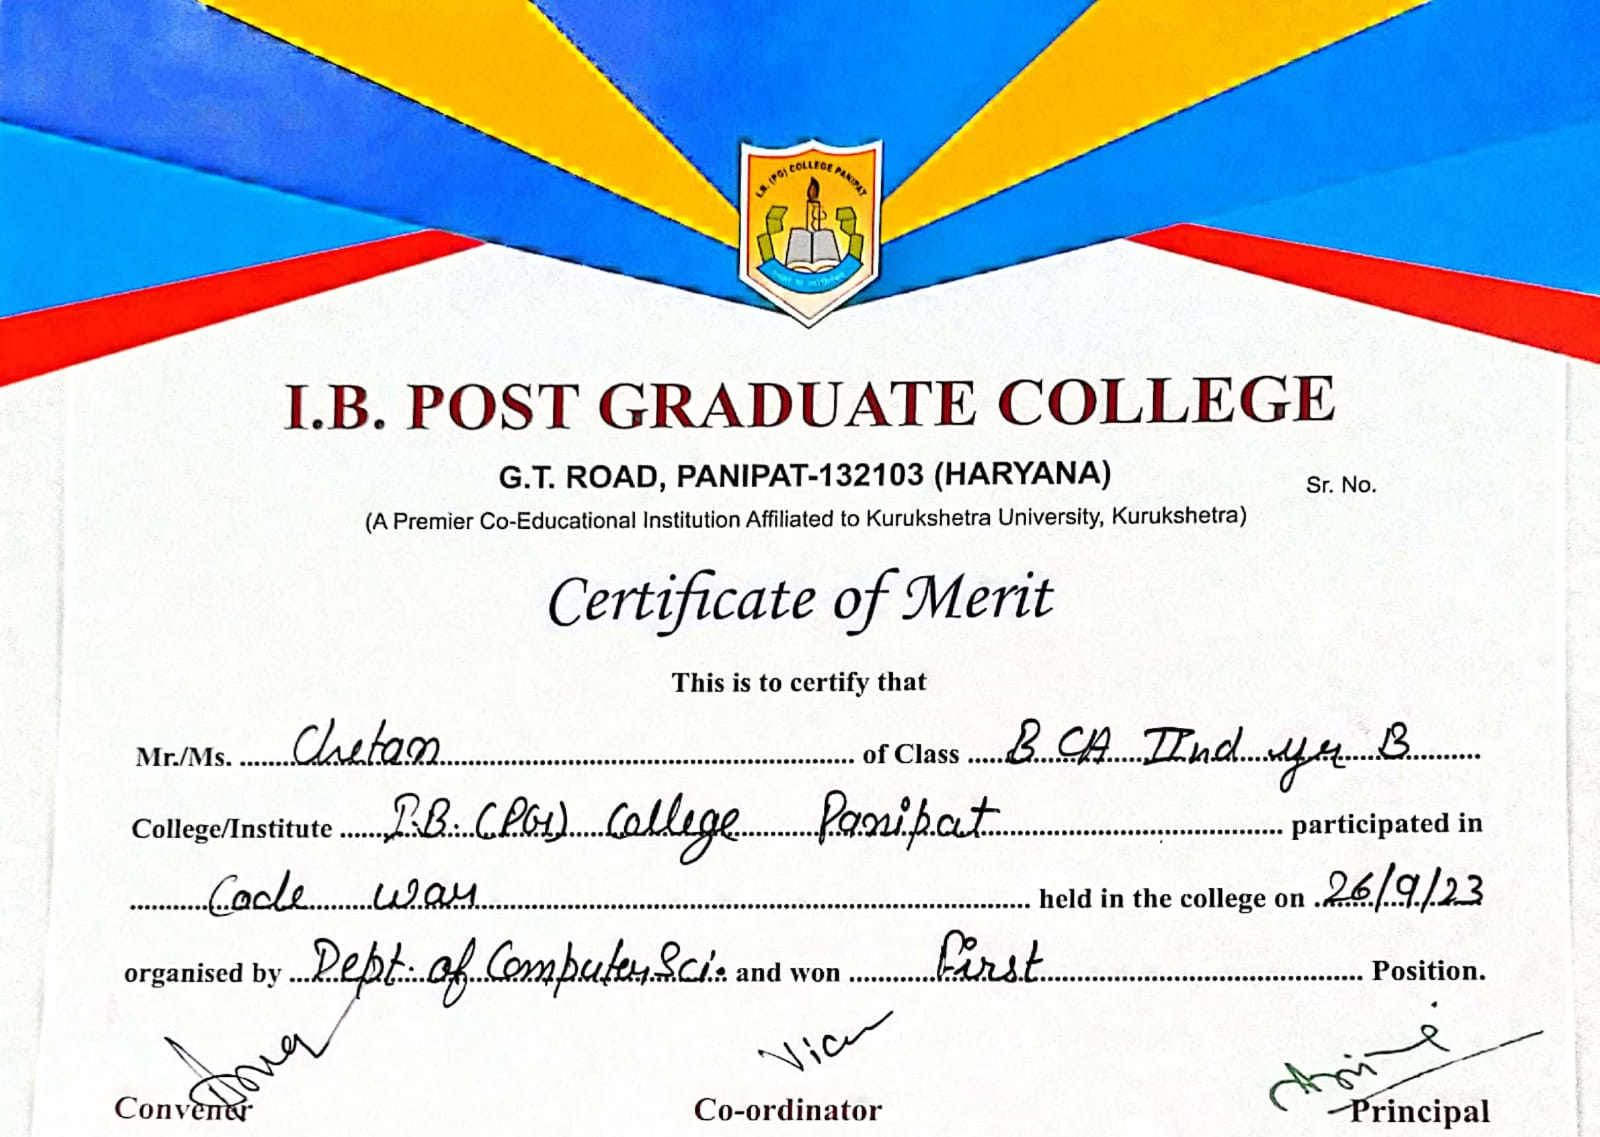 I.B. (PG) COLLEGE PANIPAT
I.B. POST GRADUATE COLLEGE
G.T. ROAD, PANIPAT-132103 (HARYANA)
Sr. No.
(A Premier Co-Educational Institution Affiliated to Kurukshetra University, Kurukshetra)
Certificate of Merit
This is to certify that
Mr./Ms. Chetan of Class BCA IInd yr B
College/Institute I.B. (PG) College Panipat participated in
Code War held in the college on 26/9/23
organised by Dept. of Computer Sci. and won First Position.
Convener Co-ordinator Principal